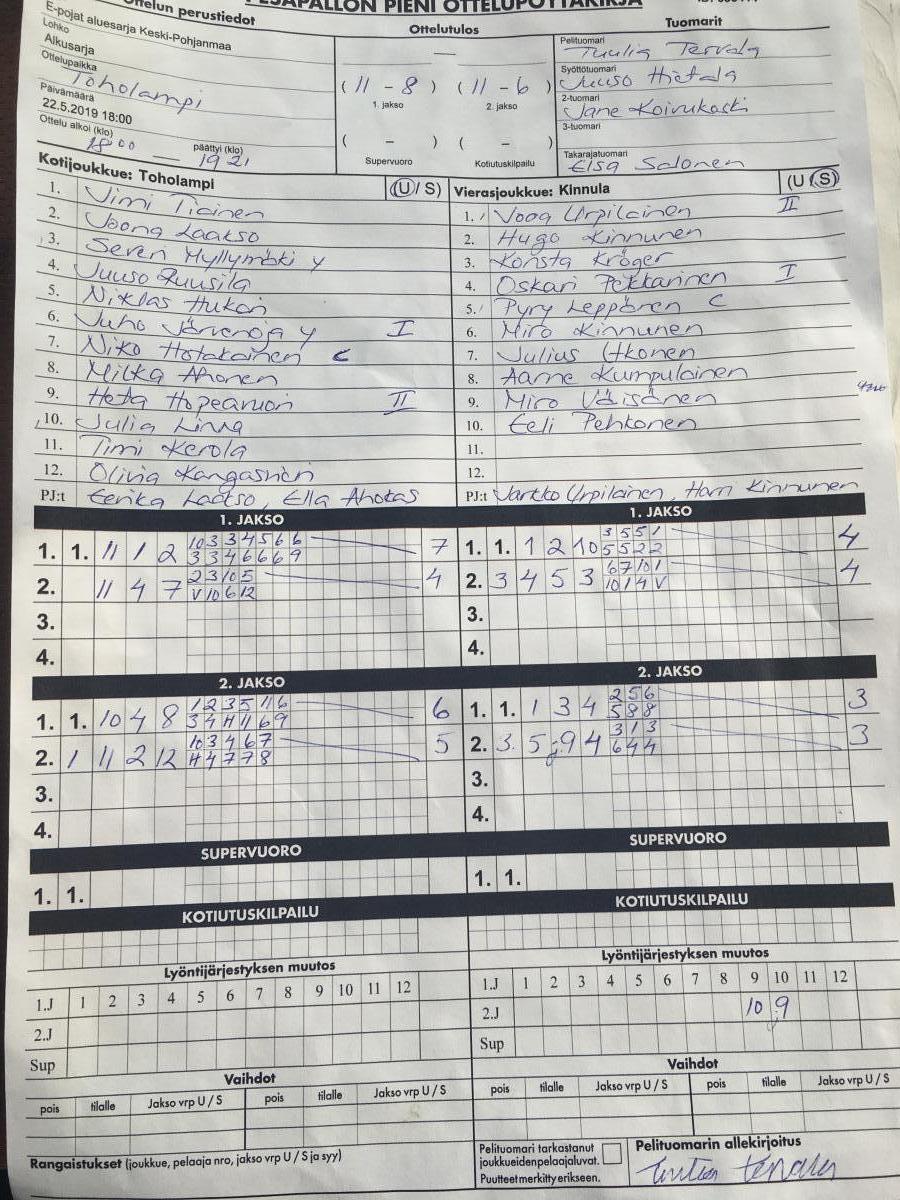 Ottelun perustiedot
PESÄPALLON PIENI OTTELUPÖYTÄKIRJA
E-pojat aluesarja Keski-Pohjanmaa
Lohko
Alkusarja
Ottelupaikka
Toholampi
Päivämäärä
22.5.2019 18:00
Ottelu alkoi (klo)
päättyi (klo)
18:00 — 19 21
Ottelutulos
( 11 - 8 ) ( 11 - 6 )
1. jakso 2. jakso
( - ) ( - )
Supervuoro Kotiutuskilpailu
Tuomarit
Pelituomari
Tuulia Tervala
Syöttötuomari
Juuso Hietala
2-tuomari
Jane Koivukoski
3-tuomari
Takarajatuomari
Elsa Salonen
Kotijoukkue: Toholampi (U / S)
1. Jimi Tiainen
2. Joona Laakso
3. Severi Myllymäki y
4. Juuso Ruusila
5. Niklas Hukari
6. Juho Järvenoja y I
7. Niko Hotakainen c
8. Milka Ahonen
9. Heta Hopeavuori II
10. Julia Linna
11. Timi Kerola
12. Olivia Kangasniemi
PJ:t Eerika Laakso, Ella Ahokas
Vierasjoukkue: Kinnula (U / S)
1. Vooa Urpilainen II
2. Hugo Kinnunen
3. Konsta Kröger
4. Oskari Pekkarinen I
5. Pyry Leppänen C
6. Miro Kinnunen
7. Julius Utkonen
8. Aarne Kumpulainen
9. Miro Väisänen
10. Eeli Pehkonen
11.
12.
PJ:t Jarkko Urpilainen, Harri Kinnunen
1. JAKSO
1. 1. 11 1 2 10 3 3 4 5 6 6 7
3 3 4 6 6 6 9
2. 11 4 7 2 3 10 5 4
V 10 6 12
3.
4.
1. JAKSO
1. 1. 1 2 10 3 5 5 1 4
5 5 2 2
2. 3 4 5 3 6 7 10 1 4
10 1 4 V
3.
4.
2. JAKSO
1. 1. 10 4 8 1 2 3 5 11 6 6
3 4 4 11 6 9
2. 1 11 2 12 10 3 4 6 7 5
4 4 7 7 8
3.
4.
2. JAKSO
1. 1. 1 3 4 2 5 6 3
5 8 8
2. 3. 5 9 4 3 1 3 3
6 4 4
3.
4.
SUPERVUORO
1. 1.
SUPERVUORO
1. 1.
KOTIUTUSKILPAILU
KOTIUTUSKILPAILU
Lyöntijärjestyksen muutos
1.J 1 2 3 4 5 6 7 8 9 10 11 12
2.J
Sup
Lyöntijärjestyksen muutos
1.J 1 2 3 4 5 6 7 8 9 10 11 12
2.J 10 9
Sup
Vaihdot
pois tilalle Jakso vrp U / S pois tilalle Jakso vrp U / S
Vaihdot
pois tilalle Jakso vrp U / S pois tilalle Jakso vrp U / S
Rangaistukset (joukkue, pelaaja nro, jakso vrp U / S ja syy)
Pelituomari tarkastanut
joukkueidenpelaajaluvat.
Puutteet merkitty erikseen.
Pelituomarin allekirjoitus
Tuulia Tervala